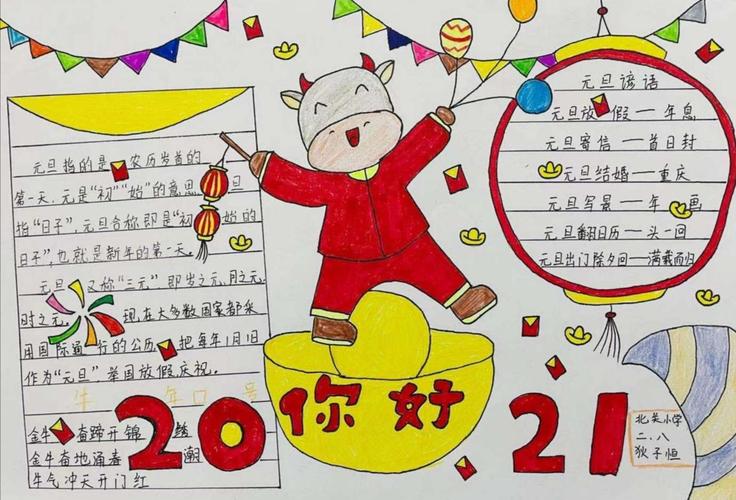 元旦指的是农历岁首的
第一天.元是“初”“始”的意思,旦
指“日子”,元旦合称即是“初始的
日子”,也就是新年的第一天.
元旦又称“三元”,即岁之元,月之元,
时之元.现在大多数国家都采
用国际通行的公历,把每年1月1日
作为“元旦”举国放假庆祝.
牛年口号
金牛奋蹄开锦绣
金牛奋地涌春潮
牛气冲天开门红
元旦谚语
元旦放假——年息
元旦寄信——首日封
元旦结婚——重庆
元旦写景——年画
元旦翻日历——头一回
元旦出门除夕回——满载而归
20你好21
北关小学
二.八
狄子恒